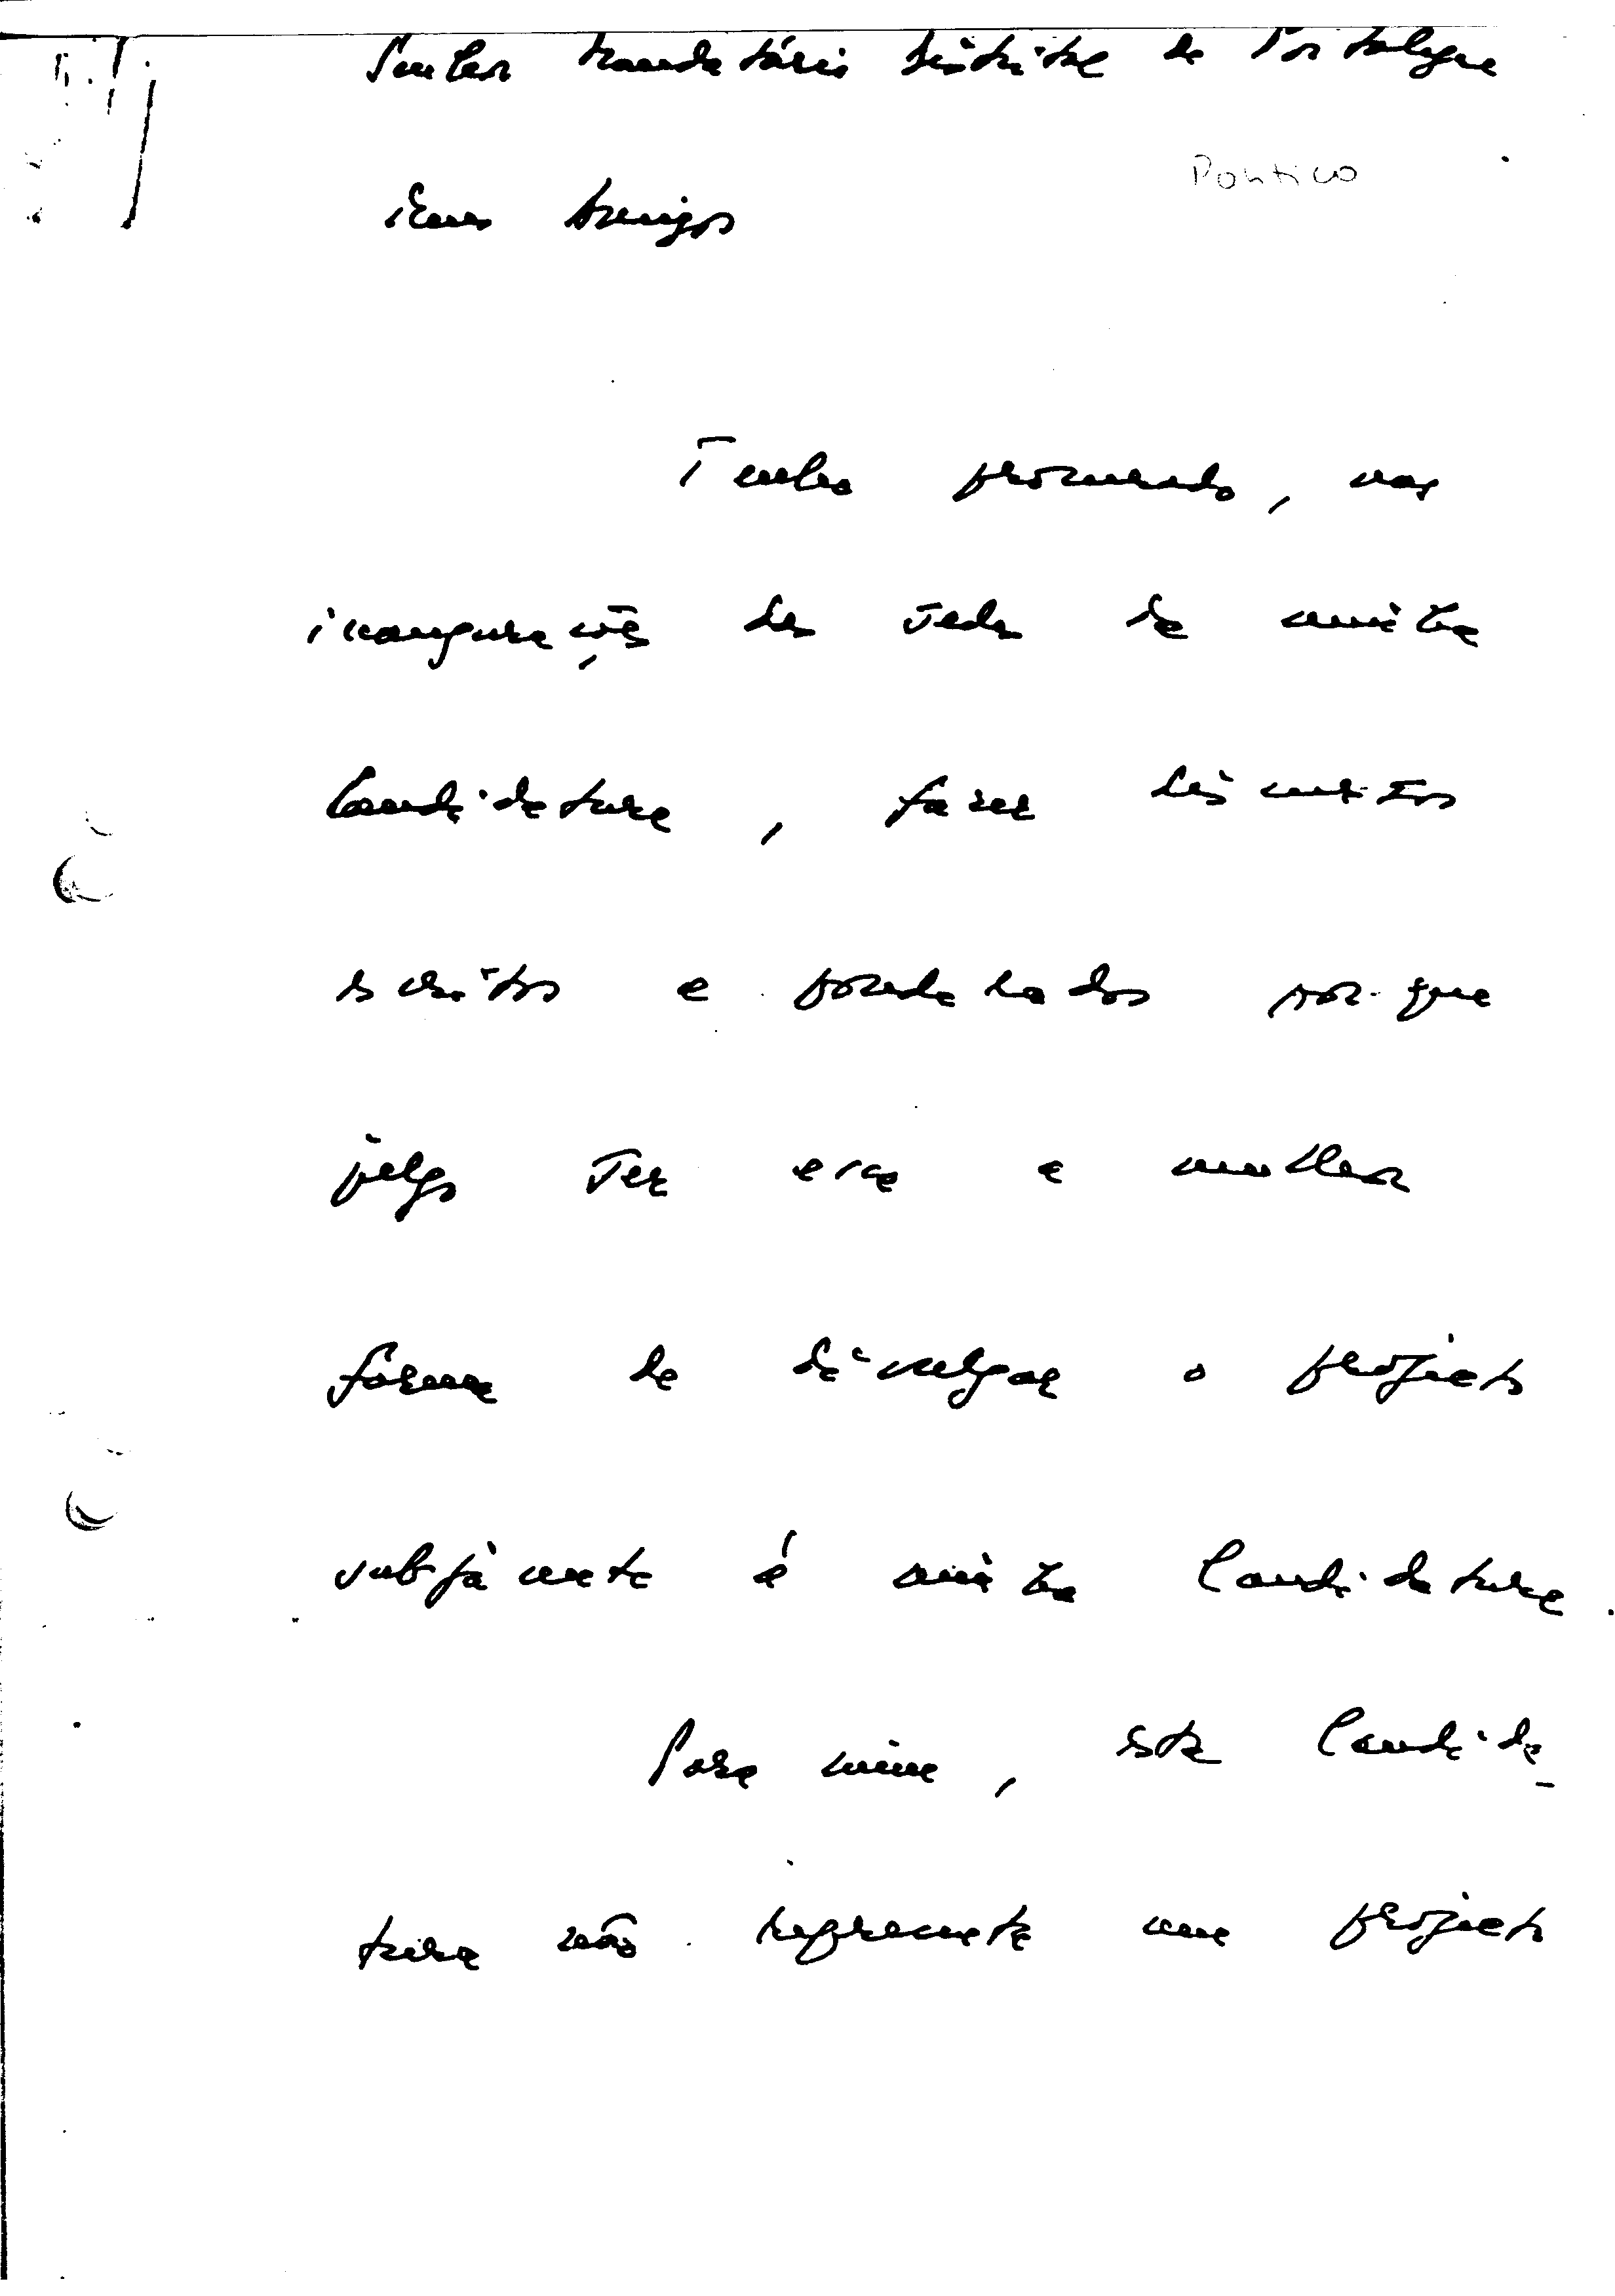 Senhor Mandatário Distrital de Portalegre
Político
Meus Amigos
Tenho procurado, nas
inaugurações das sedes da minha
Candidatura, fazer discursos
escritos e ponderados porque
julgo ser essa a melhor
forma de divulgar o projecto
subjacente à minha Candidatura.
Para mim, esta Candida-
tura não representa um projecto